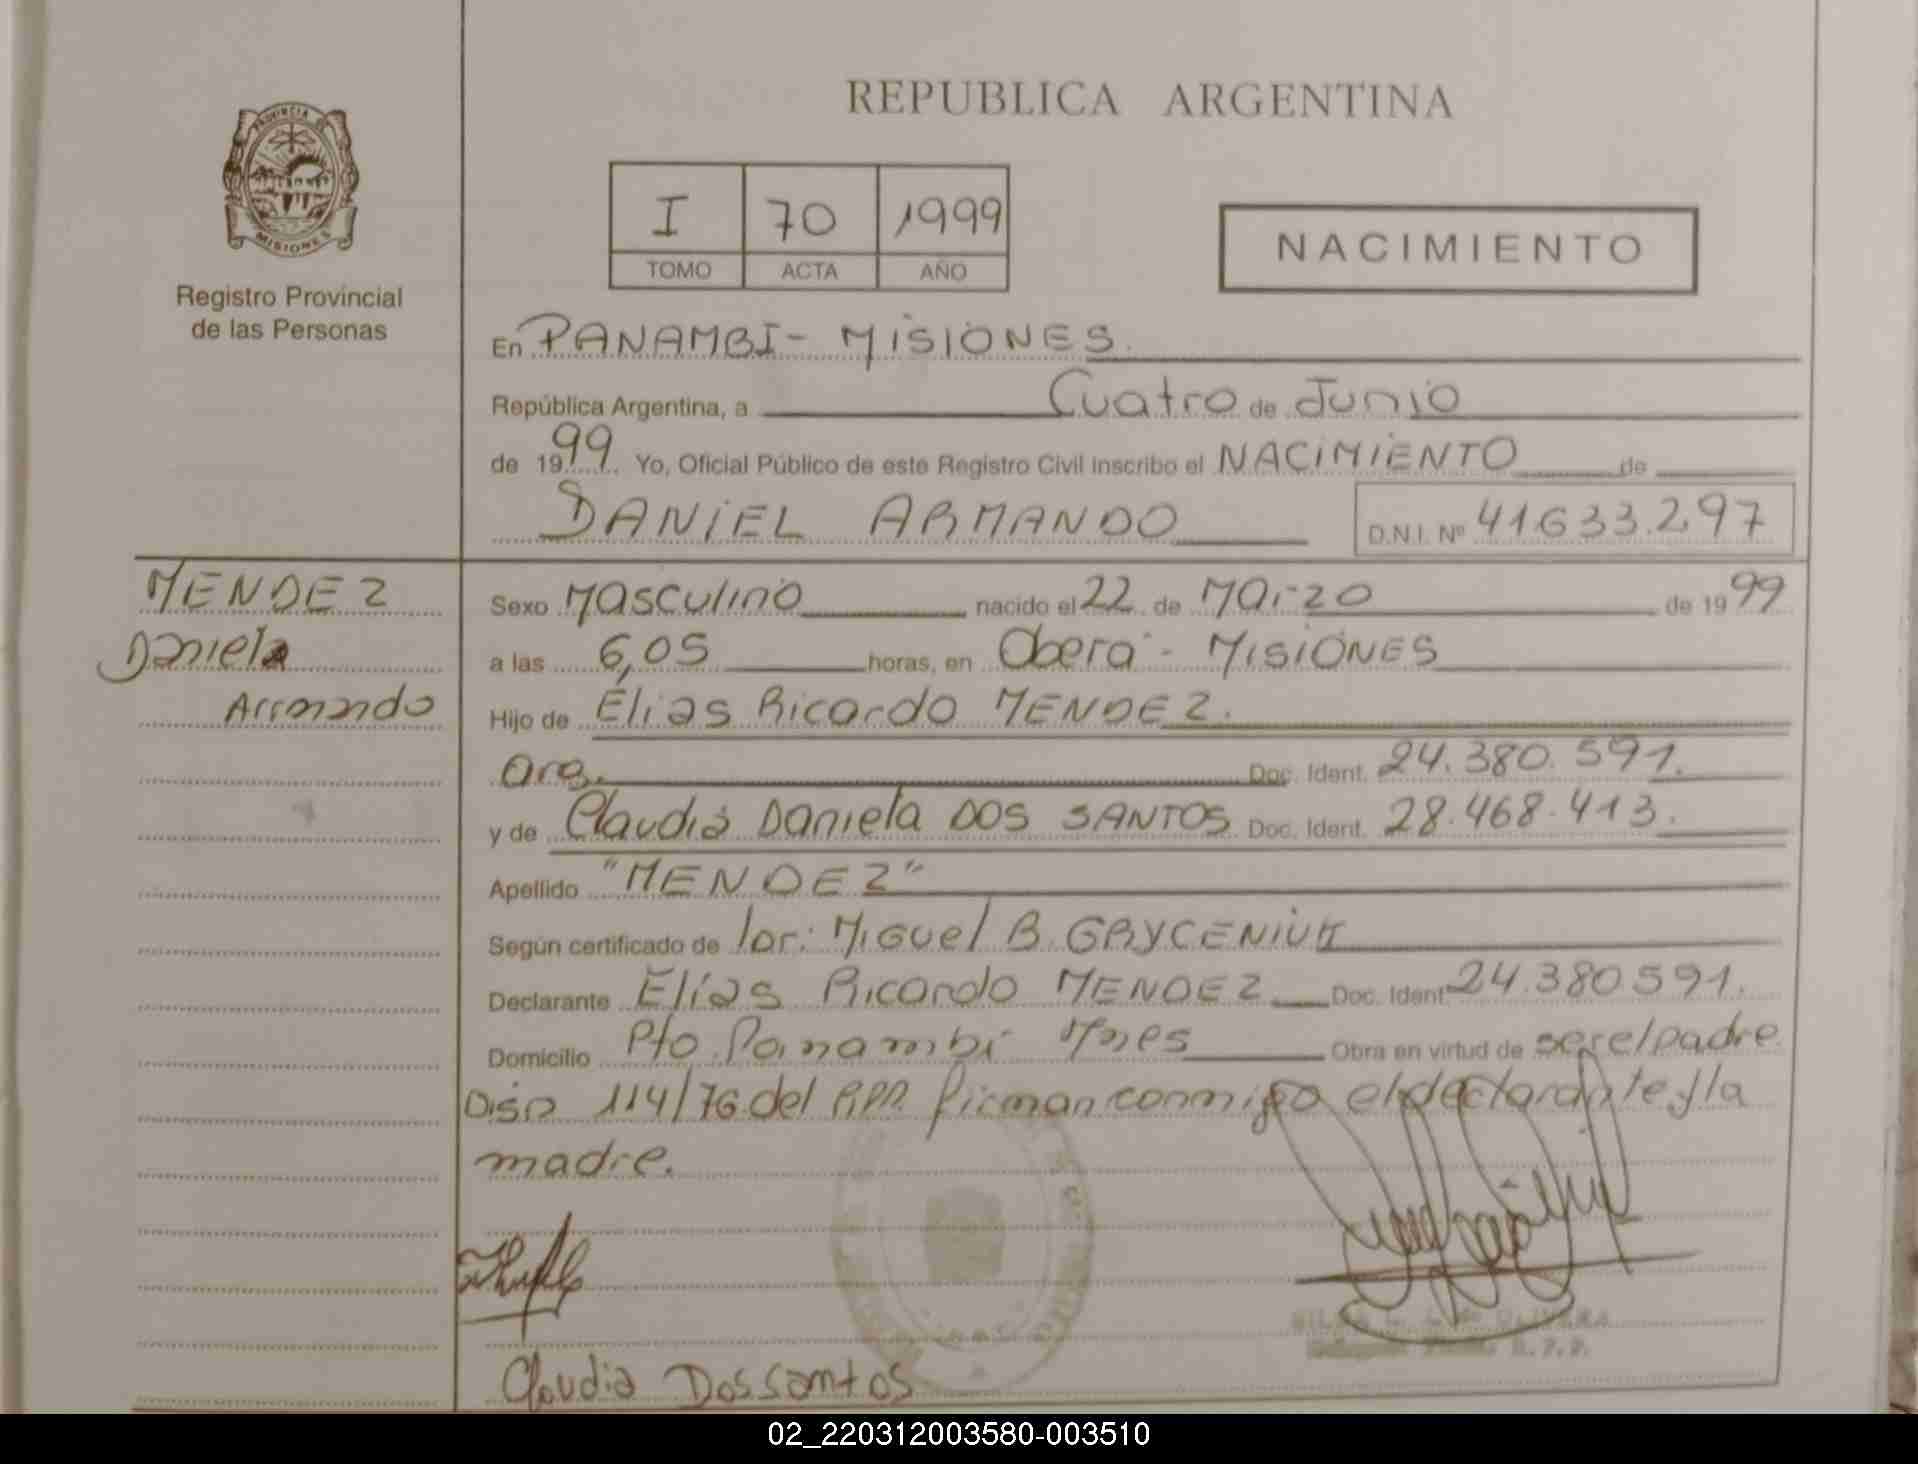 REPUBLICA ARGENTINA
PROVINCIA DE
MISIONES
Registro Provincial
de las Personas
I 70 1999
TOMO ACTA AÑO
NACIMIENTO
En PANAMBI - MISIONES.
República Argentina, a Cuatro de Junio
de 1999. Yo, Oficial Público de este Registro Civil Inscribo el NACIMIENTO de
DANIEL ARMANDO D.N.I. Nº 41633.297
MENDEZ
Daniel
Armando
Sexo Masculino nacido el 22 de Marzo de 1999
a las 6,05 horas, en Obera - MISIONES
Hijo de Elias Ricardo MENDEZ.
arg. Doc. Ident. 24.380.591.
y de Claudia Daniela DOS SANTOS Doc. Ident. 28.468.413.
Apellido "MENDEZ"
Según certificado de Dr: Miguel B. GRYCENIUK
Declarante Elías Ricardo MENDEZ Doc. Ident. 24.380591.
Domicilio Pto. Panambi Mnes Obra en virtud de ser el padre
Disp 114/76 del RPP firman conmigo el declarante y la
madre.
Claudia Dos santos
OLIVERA
R.P.P.
02_220312003580-003510